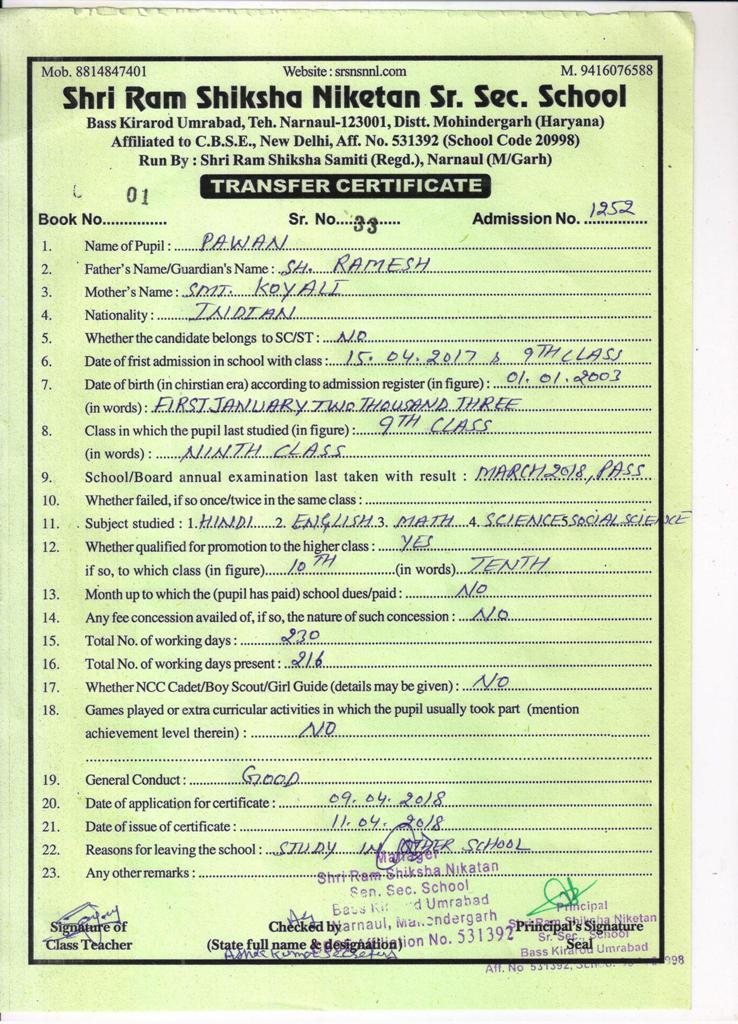 Mob. 8814847401 Website : srsnsnnl.com M. 9416076588
Shri Ram Shiksha Niketan Sr. Sec. School
Bass Kirarod Umrabad, Teh. Narnaul-123001, Distt. Mohindergarh (Haryana)
Affiliated to C.B.S.E., New Delhi, Aff. No. 531392 (School Code 20998)
Run By : Shri Ram Shiksha Samiti (Regd.), Narnaul (M/Garh)
TRANSFER CERTIFICATE
Book No. 01 Sr. No. 33 Admission No. 1252
1. Name of Pupil : PAWAN
2. Father's Name/Guardian's Name : SH. RAMESH
3. Mother's Name : SMT. KOYALI
4. Nationality : INDIAN
5. Whether the candidate belongs to SC/ST : NO
6. Date of frist admission in school with class : 15.04.2017 & 9TH CLASS
7. Date of birth (in chirstian era) according to admission register (in figure) : 01.01.2003
(in words) : FIRST JANUARY TWO THOUSAND THREE
8. Class in which the pupil last studied (in figure) : 9TH CLASS
(in words) : NINTH CLASS
9. School/Board annual examination last taken with result : MARCH 2018, PASS
10. Whether failed, if so once/twice in the same class :
11. Subject studied : 1. HINDI 2. ENGLISH 3. MATH 4. SCIENCE 5 SOCIAL SCIENCE
12. Whether qualified for promotion to the higher class : YES
if so, to which class (in figure) 10TH (in words) TENTH
13. Month up to which the (pupil has paid) school dues/paid : NO
14. Any fee concession availed of, if so, the nature of such concession : NO
15. Total No. of working days : 230
16. Total No. of working days present : 216
17. Whether NCC Cadet/Boy Scout/Girl Guide (details may be given) : NO
18. Games played or extra curricular activities in which the pupil usually took part (mention
achievement level therein) : NO
19. General Conduct : GOOD
20. Date of application for certificate : 09.04.2018
21. Date of issue of certificate : 11.04.2018
22. Reasons for leaving the school : STUDY IN OTHER SCHOOL
23. Any other remarks :
Manager
Shri Ram Shiksha Nikatan
Sen. Sec. School
Umrabad
Narnaul,
No. 531392
Signature of
Class Teacher
Checked by
(State full name & designation)
Ashok Kumar
Principal's Signature
Seal
Principal
Shri Ram Shiksha Niketan
Sr. Sec. School
Bass Kirarod Umrabad
Aff. No 531392,